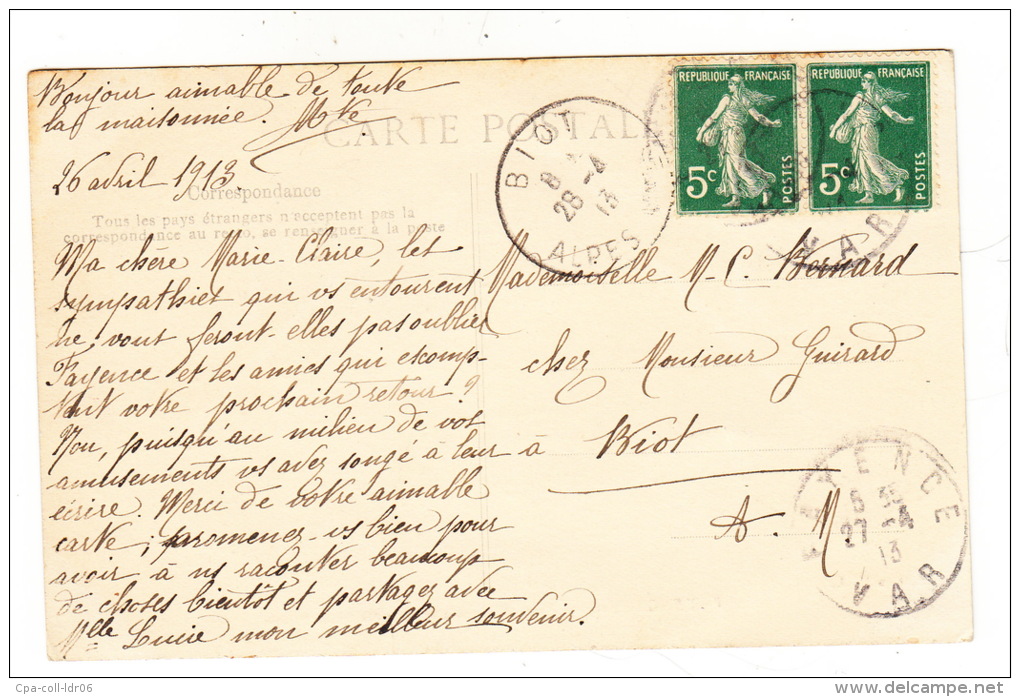 Bonjour aimable de toute
la maisonnée.
26 avril 1913.
CARTE POSTALE
Correspondance
Tous les pays étrangers n'acceptent pas la
correspondance au recto, se renseigner à la poste
Ma chère Marie-Claire, les
sympathies qui vs entourent
ne vous feront-elles pas oublier
Fayence et les amies qui escomp-
tent votre prochain retour?
Non, puisqu'au milieu de vos
amusements vs avez songé à leur
écrire. Merci de votre aimable
carte; promenez-vs bien pour
avoir à ns raconter beaucoup
de choses bientôt et partagez avec
Mlle Lucie mon meilleur souvenir.
BIOT
28 -4
13
ALPES
REPUBLIQUE FRANÇAISE
5c
POSTES
REPUBLIQUE FRANÇAISE
5c
POSTES
VAR
Mademoiselle M-C. Bernard
chez Monsieur Guirard
à Biot
A. M
FAYENCE
27 -4
13
VAR
Cpa-coll-ldr06
www.delcampe.net